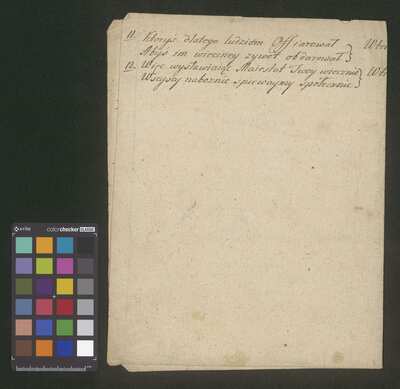 11. Któryś dlatego ludziom Offiarował
Abyś im wieczny zywot obdarował
12. Więc wystawiaiąc Maiestat Twoy wiecznie
Wszyscy naboznie spiewaymy społecznie
colorchecker CLASSIC
x-rite